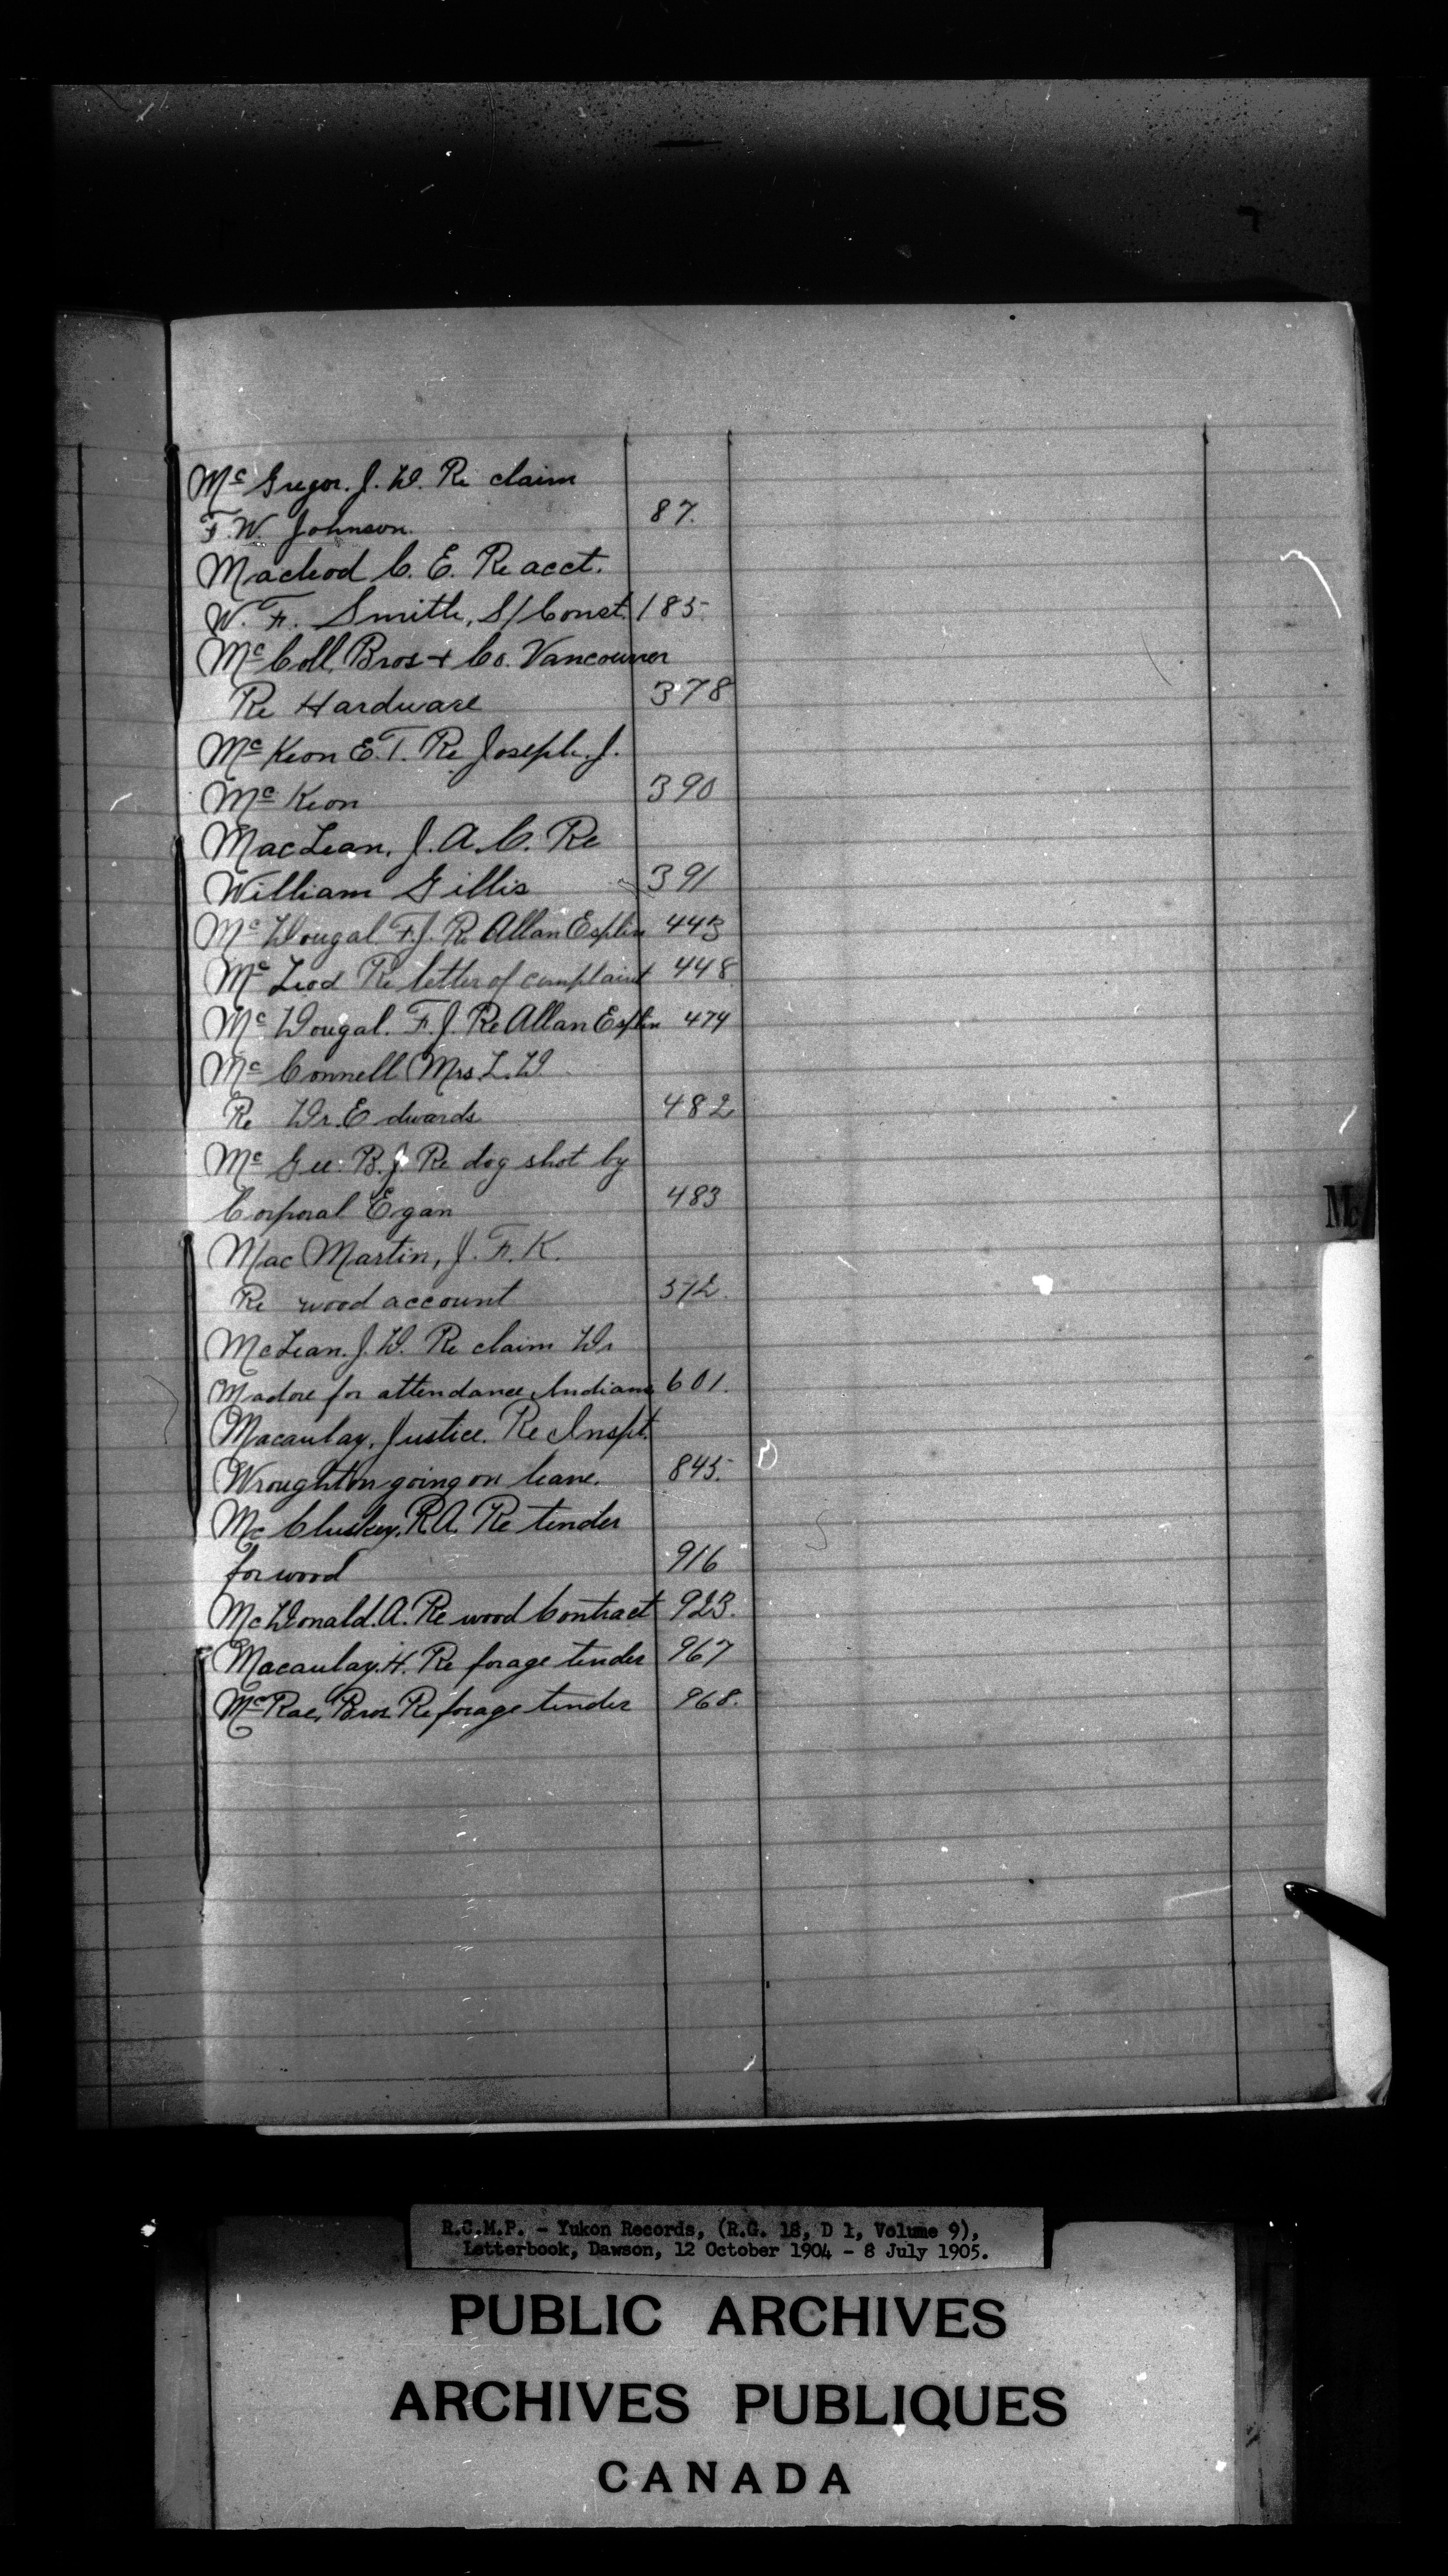 Mc Gregor. J. D. Re claim
F. W. Johnson. 87.
Macleod C. E. Re acct.
W. F. Smith, S/Const. 185.
Mc Coll Bros + Co. Vancouver
Re Hardware 378
Mc Keon E. T. Re Joseph. J.
Mc Keon 390
MacLean, J. A. C. Re
William Gillis 391
Mc Dougal. F. J. Re Allan Esplin 443
Mc Leod Re letter of complaint 448
Mc Dougal. F. J. Re Allan Esplin 474
Mc Connell Mrs L. D.
Re Dr. Edwards 482
Mc Gee. B. J. Re dog shot by
Corporal Egan 483
Mac Martin, J. F. K.
Re wood account 572.
McLean. J. D. Re claim Dr
Madore for attendance Indians 601.
Macaulay, Justice. Re Inspt.
Wroughton going on leave. 845.
Mc Cluskey, R. A. Re tender
for wood 916
McDonald. A. Re wood Contract 923.
Macaulay. H. Re forage tender 967
McRae, Bros. Re forage tender 968.
Mc
R.C.M.P. - Yukon Records, (R.G. 18, D 1, Volume 9),
Letterbook, Dawson, 12 October 1904 - 8 July 1905.
PUBLIC ARCHIVES
ARCHIVES PUBLIQUES
CANADA